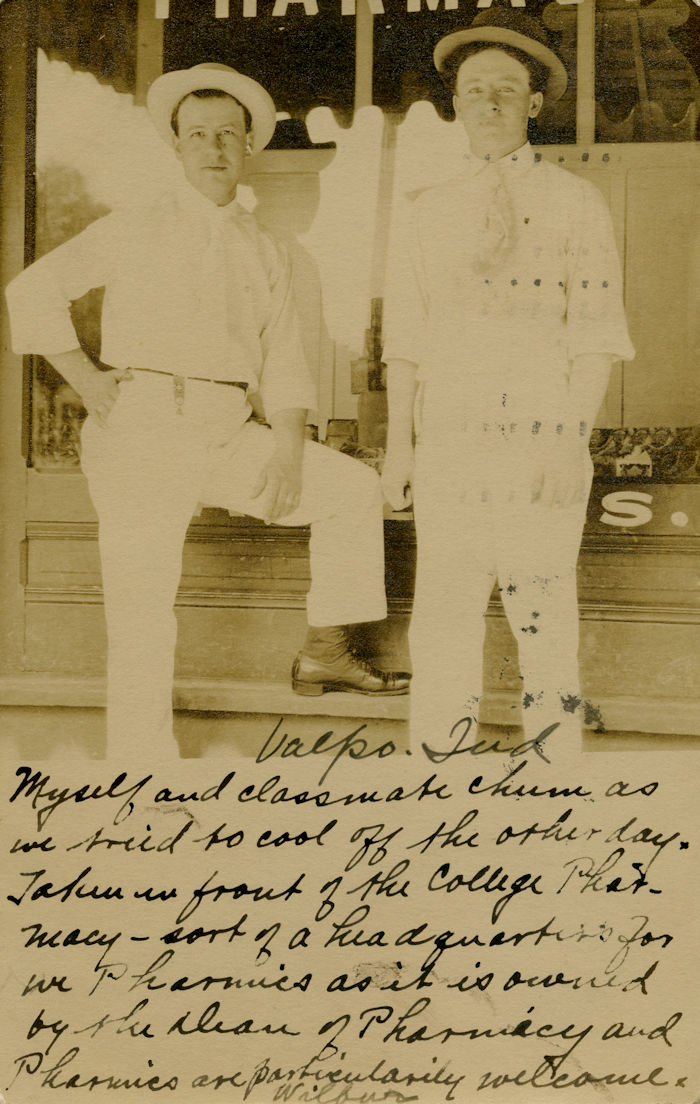 PHARMA
S.
Valpo. Ind
Myself and classmate chum as
we tried to cool off the other day.
Taken in front of the College Phar-
macy - sort of a headquarters for
we Pharmics as it is owned
by the Dean of Pharmacy and
Pharmics are particularily welcome.
Wilbur